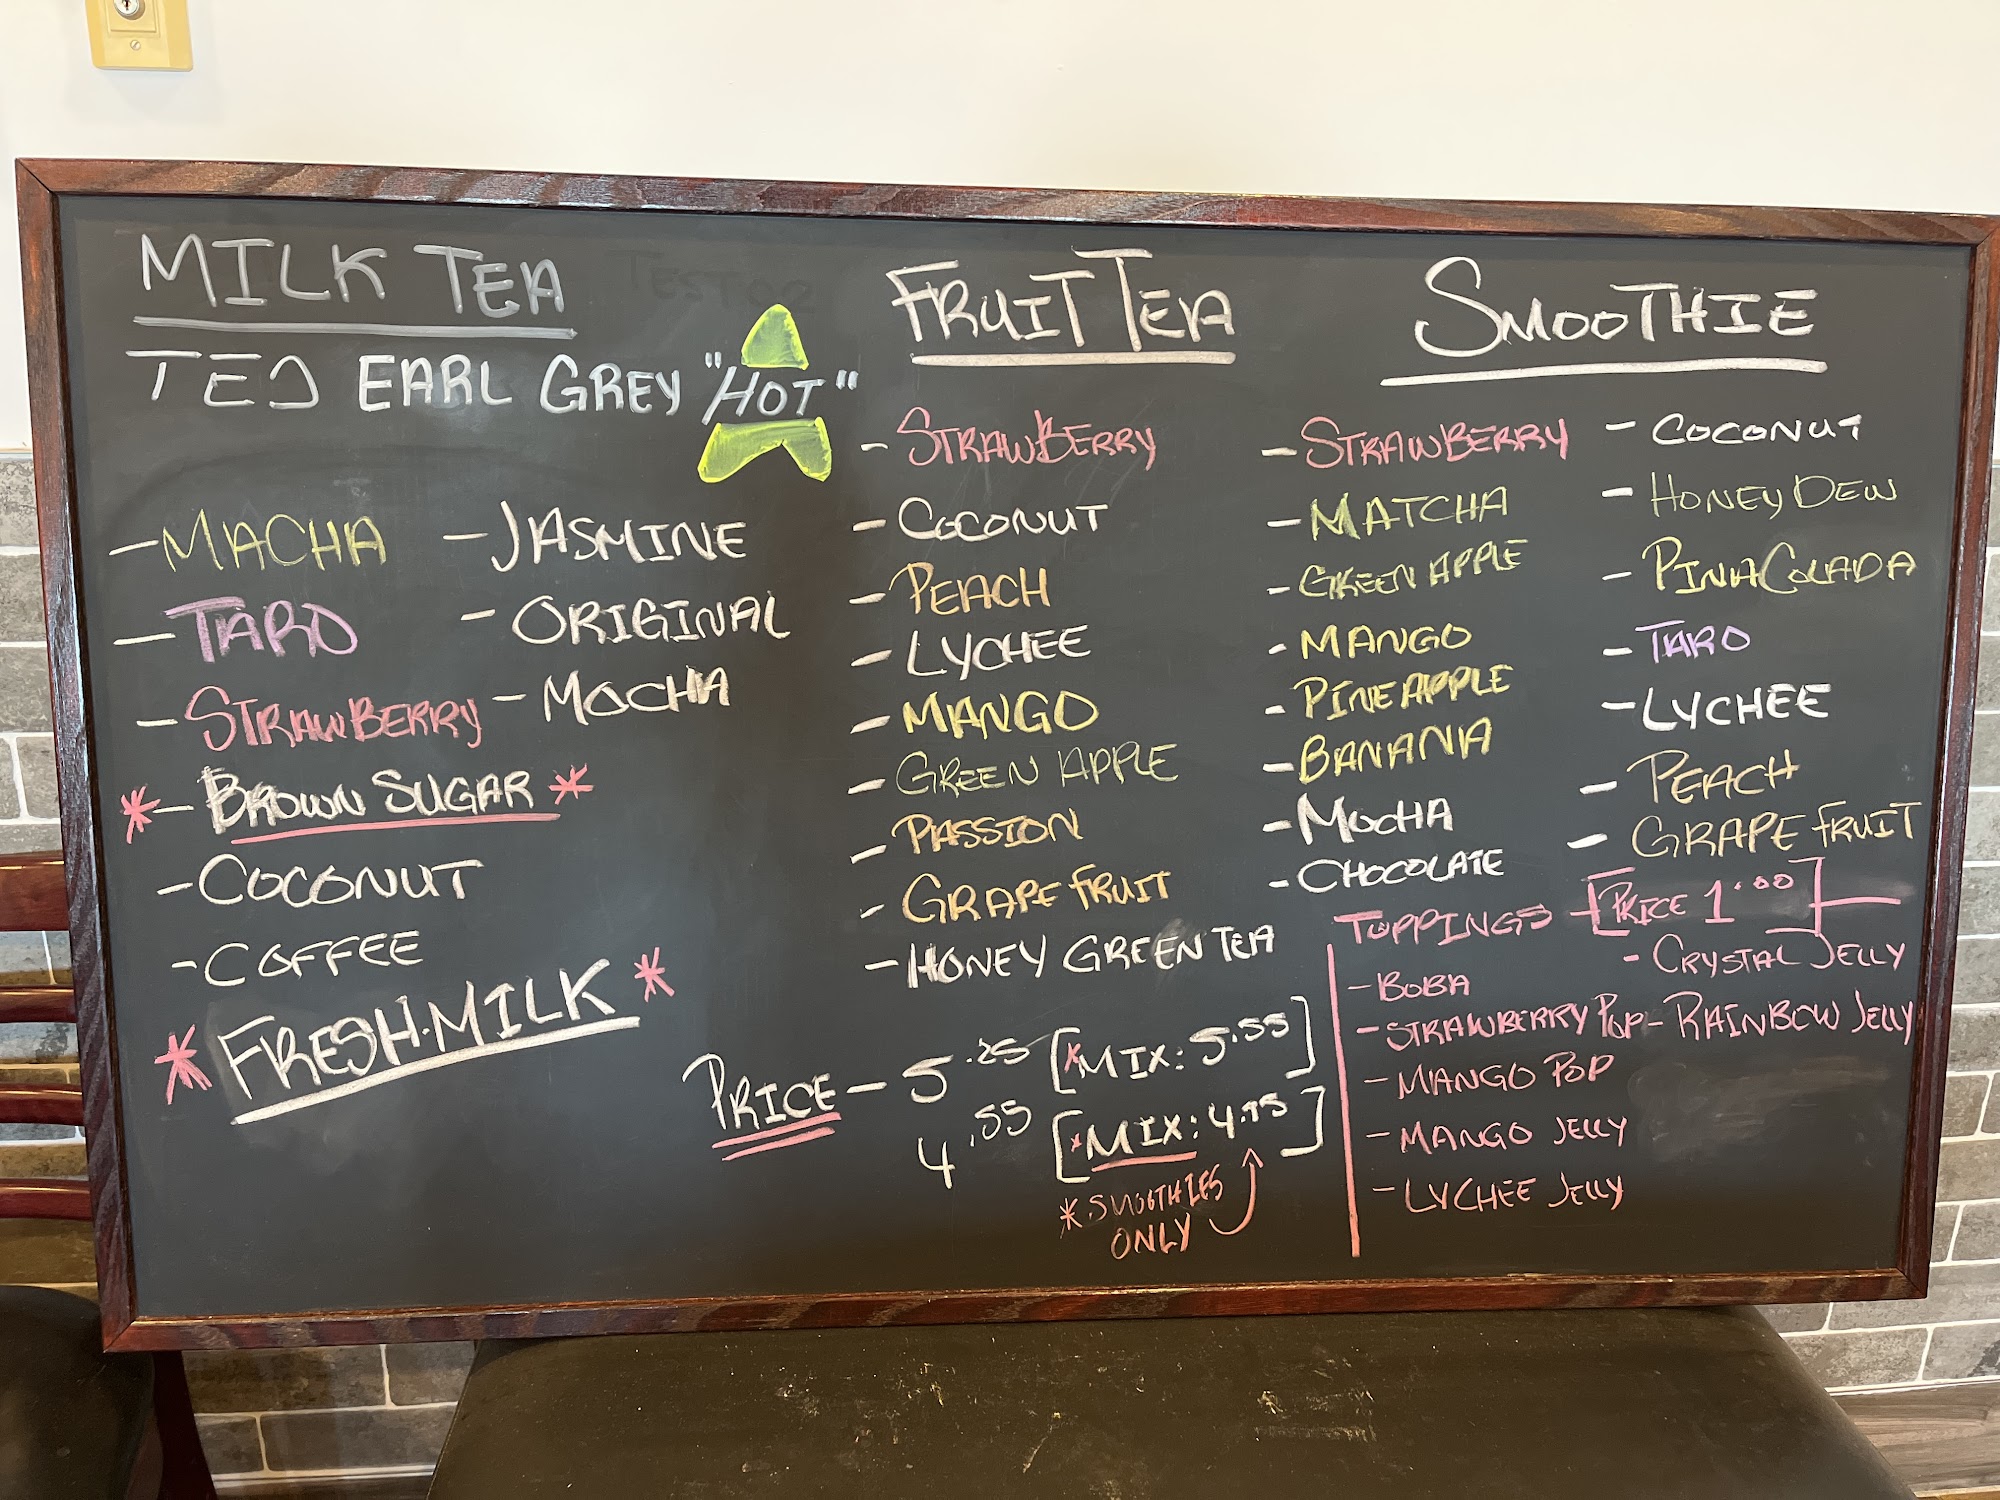 MILK TEA
TED EARL GREY "HOT"
- MACHA
- TARO
- STRAWBERRY
* - BROWN SUGAR *
- COCONUT
- COFFEE
* FRESH.MILK *
- JASMINE
- ORIGINAL
- MOCHA
FRUIT TEA
- STRAWBERRY
- COCONUT
- PEACH
- LYCHEE
- MANGO
- GREEN APPLE
- PASSION
- GRAPE FRUIT
- HONEY GREEN TEA
PRICE - 5.25 [*MIX: 5.55]
4.55 [*MIX: 4.75]
*SMOOTHIES
ONLY
SMOOTHIE
- STRAWBERRY
- MATCHA
- GREEN APPLE
- MANGO
- PINEAPPLE
- BANANA
- MOCHA
- CHOCOLATE
- COCONUT
- HONEY DEW
- PINA COLADA
- TARO
- LYCHEE
- PEACH
- GRAPE FRUIT
TOPPINGS - [PRICE 1.00]
- BOBA
- STRAWBERRY POP
- MANGO POP
- MANGO JELLY
- LYCHEE JELLY
- CRYSTAL JELLY
- RAINBOW JELLY